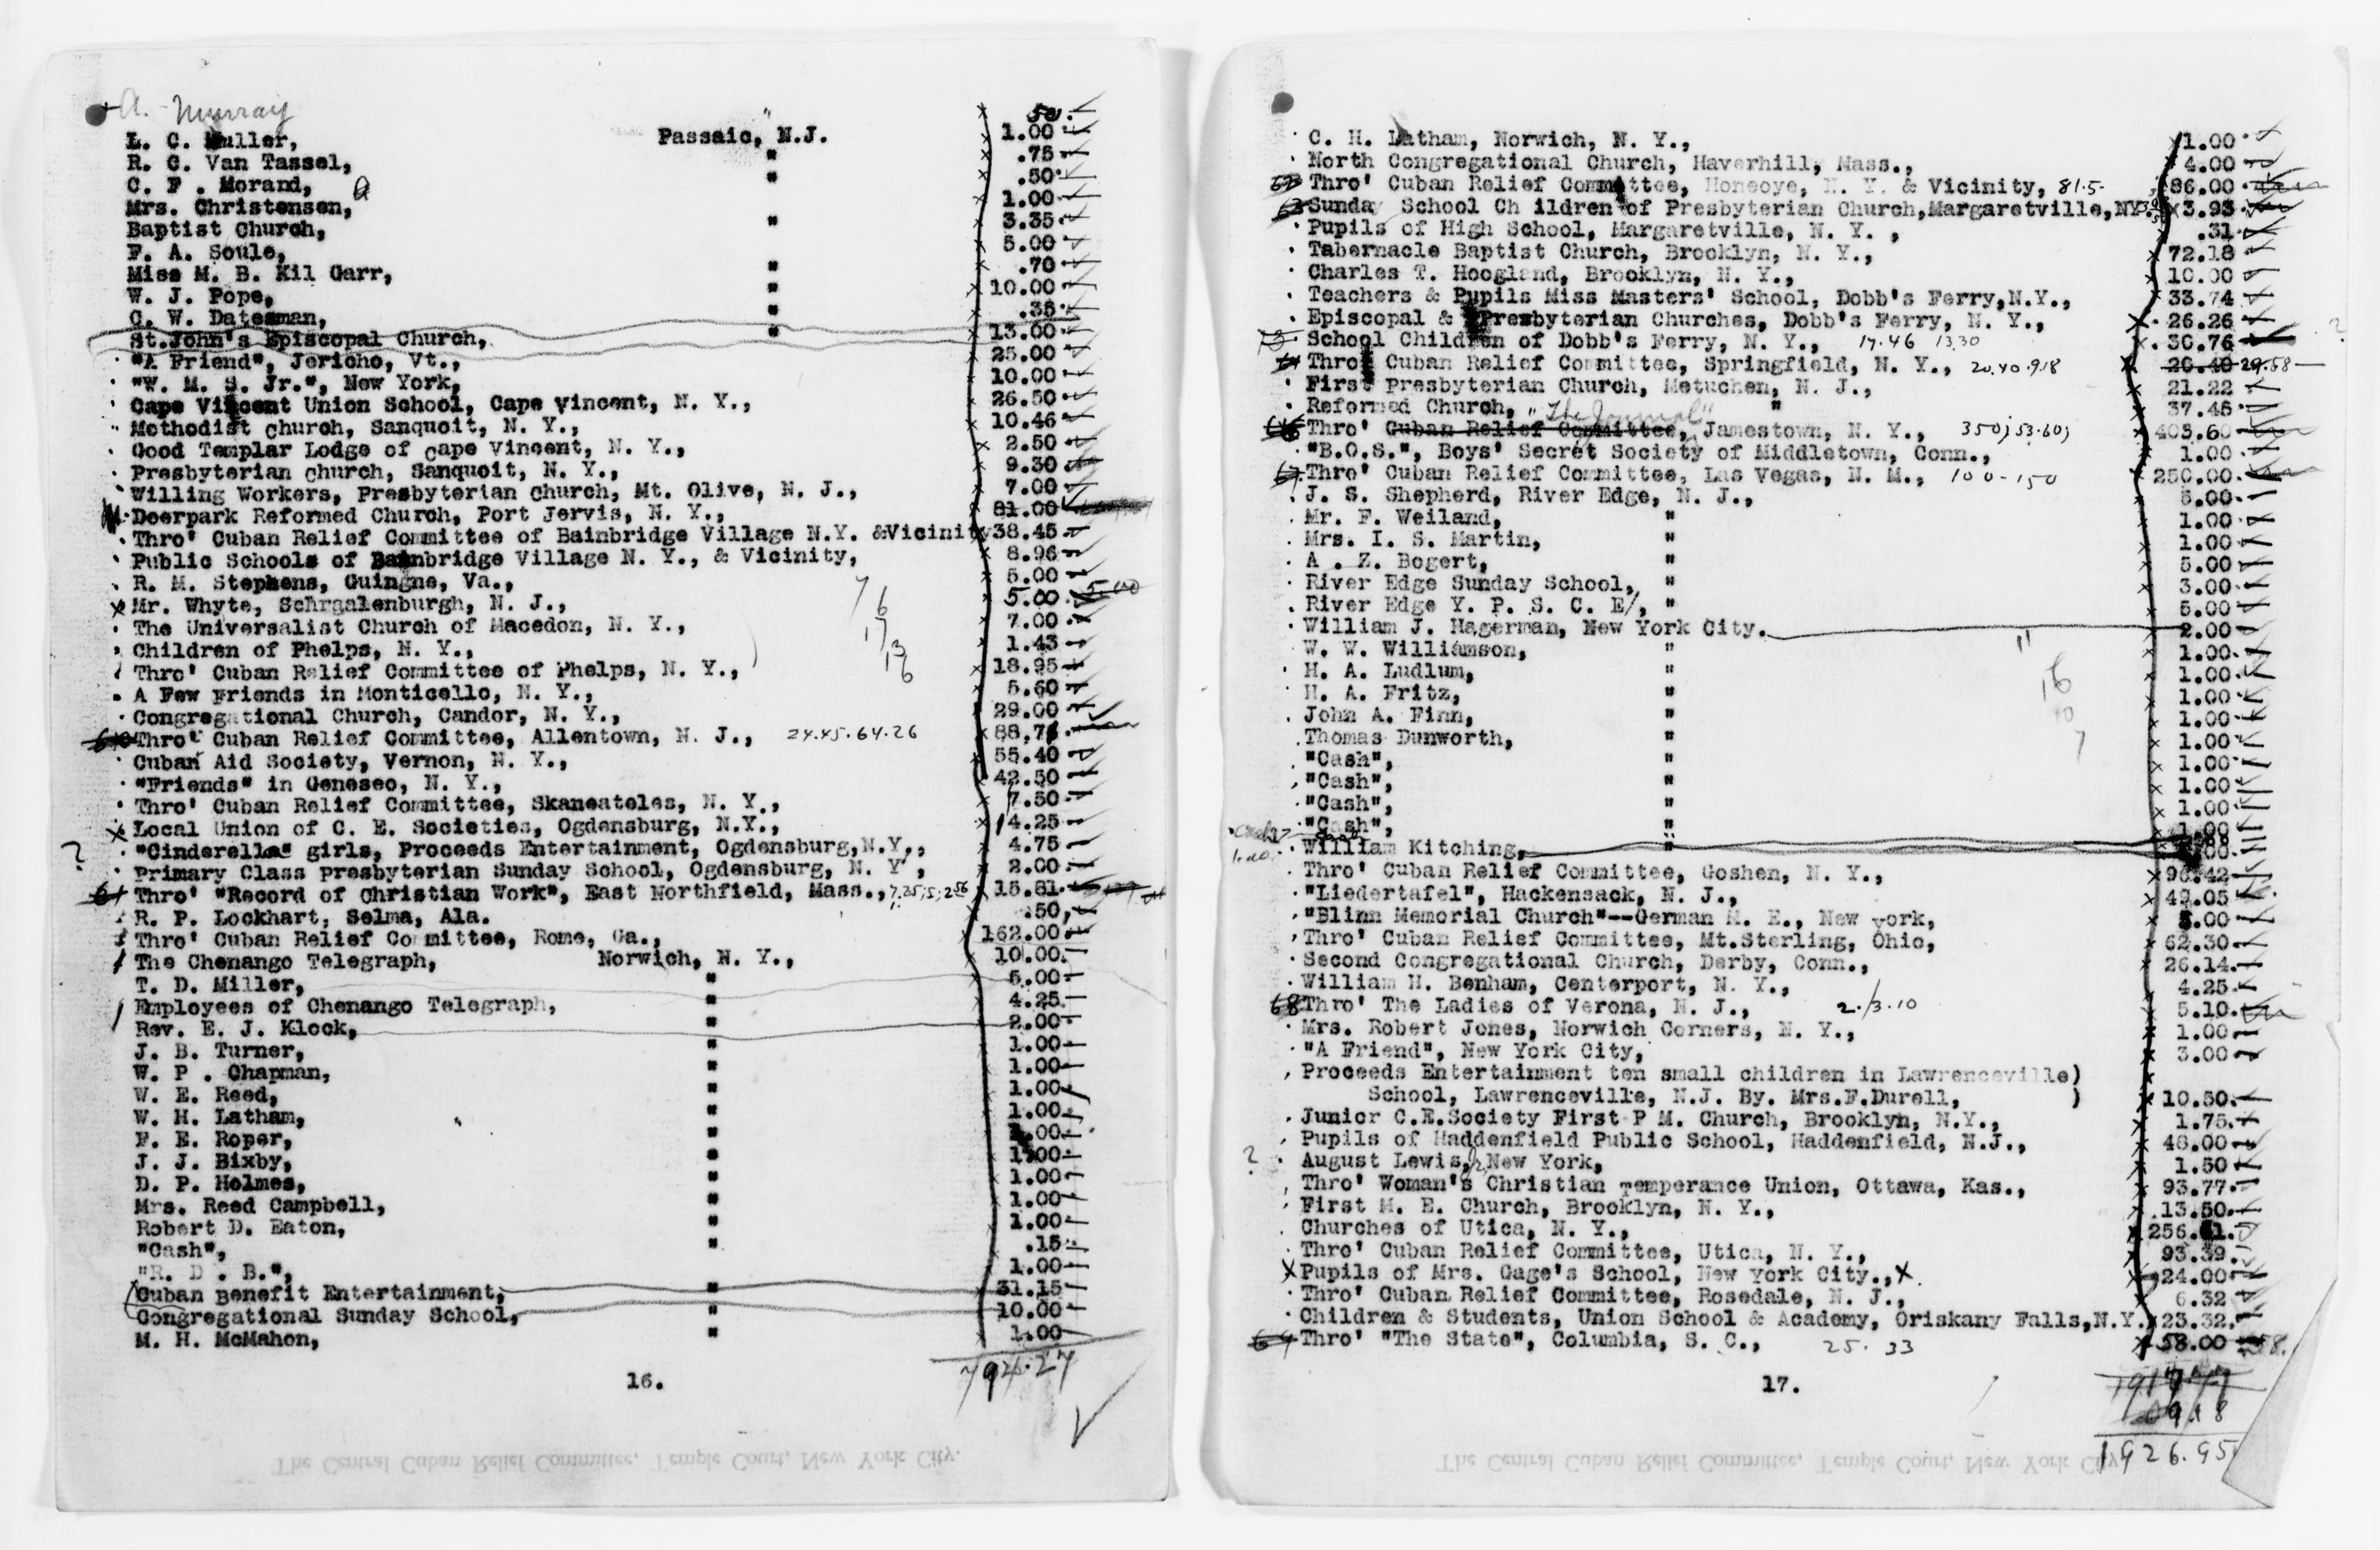 A. Murray " 50.
L. C. Muller, Passaic, N.J. 1.00
R. C. Van Tassel, " .75
C. F . Morand, " .50
Mrs. Christensen, 1.00
Baptist Church, " 3.35
F. A. Soule, 5.00
Miss M. B. Kil Garr, " .70
W. J. Pope, " 10.00
C. W. Datesman, " .35
St.John's Episcopal Church, " 13.00
"A Friend", Jericho, Vt., 25.00
"W. M. S. Jr.", New York, 10.00
Cape Vincent Union School, Cape Vincent, N. Y., 26.50
Methodist Church, Sanquoit, N. Y., 10.46
Good Templar Lodge of Cape Vincent, N. Y., 2.50
Presbyterian Church, Sanquoit, N. Y., 9.30
Willing Workers, Presbyterian Church, Mt. Olive, N. J., 7.00
Deerpark Reformed Church, Port Jervis, N. Y., 81.00
Thro' Cuban Relief Committee of Bainbridge Village N.Y. &Vicinity 38.45
Public Schools of Bainbridge Village N. Y., & Vicinity, 8.96
R. M. Stephens, Guingne, Va., 5.00
x Mr. Whyte, Schraalenburgh, N. J., 5.00 5.00
The Universalist Church of Macedon, N. Y., 7.00
Children of Phelps, N. Y., 1.43
Thro' Cuban Relief Committee of Phelps, N. Y., 18.95
A Few Friends in Monticello, N. Y., 5.60
Congregational Church, Candor, N. Y., 29.00
60 Thro' Cuban Relief Committee, Allentown, N. J., 24.45.64.26 88.71
Cuban Aid Society, Vernon, N. Y., 55.40
"Friends" in Geneseo, N. Y., 42.50
Thro' Cuban Relief Committee, Skaneateles, N. Y., 7.50
x Local Union of C. E. Societies, Ogdensburg, N.Y., 14.25
? "Cinderella" girls, Proceeds Entertainment, Ogdensburg,N.Y., 4.75
Primary Class Presbyterian Sunday School, Ogdensburg, N. Y , 2.00
61 Thro' "Record of Christian Work", East Northfield, Mass., 7.25;5;2.56 15.81
R. P. Lockhart, Selma, Ala. .50
Thro' Cuban Relief Committee, Rome, Ga., 162.00
The Chenango Telegraph, Norwich, N. Y., 10.00
T. D. Miller, " 5.00
Employees of Chenango Telegraph, " 4.25
Rev. E. J. Klock, " 2.00
J. B. Turner, " 1.00
W. P . Chapman, " 1.00
W. E. Reed, " 1.00
W. H. Latham, " 1.00
F. E. Roper, " .00
J. J. Bixby, " 1.00
D. P. Holmes, " 1.00
Mrs. Reed Campbell, " 1.00
Robert D. Eaton, " 1.00
"Cash", " .15
"R. D . B.", 1.00
Cuban Benefit Entertainment, " 31.15
Congregational Sunday School, " 10.00
M. H. McMahon, " 1.00
794.27
16.
The Central Cuban Relief Committee, Temple Court, New York City.
C. H. Latham, Norwich, N. Y., 1.00
North Congregational Church, Haverhill, Mass., 4.00
62 Thro' Cuban Relief Committee, Honeoye, N. Y. & Vicinity, 81.5- 86.00
63 Sunday School Ch ildren of Presbyterian Church,Margaretville,NY. 3.93
Pupils of High School, Margaretville, N. Y. , .31
Tabernacle Baptist Church, Brooklyn, N. Y., 72.18
Charles T. Hoogland, Brooklyn, N. Y., 10.00
Teachers & Pupils Miss Masters' School, Dobb's Ferry,N.Y., 33.74
Episcopal & Presbyterian Churches, Dobb's Ferry, N. Y., 26.26
School Children of Dobb's Ferry, N. Y., 17.46 13.30 30.76 ?
Thro' Cuban Relief Committee, Springfield, N. Y., 20.40.9.18 20.40 29.58
First Presbyterian Church, Metuchen, N. J., 21.22
Reformed Church, " 37.45
Thro' Cuban Relief Committee, "The Journal" Jamestown, N. Y., 350; 53.60; 403.60
"B.O.S.", Boys' Secret Society of Middletown, Conn., 1.00
67 Thro' Cuban Relief Committee, Las Vegas, N. M., 100-150 250.00
J. S. Shepherd, River Edge, N. J., 5.00
Mr. F. Weiland, " 1.00
Mrs. I. S. Martin, " 1.00
A . Z. Bogert, " 5.00
River Edge Sunday School, " 3.00
River Edge Y. P. S. C. E/, " 5.00
William J. Hagerman, New York City. 2.00
W. W. Williamson, " 1.00
H. A. Ludlum, " 1.00
H. A. Fritz, " 1.00
John A. Finn, " 1.00
Thomas Dunworth, " 1.00
"Cash", " 1.00
"Cash", " 1.00
"Cash", " 1.00
"Cash", " 1.00
William Kitching, " .00
Thro' Cuban Relief Committee, Goshen, N. Y., 96.42
"Liedertafel", Hackensack, N. J., 49.05
"Blinn Memorial Church"--German M. E., New York, 5.00
Thro' Cuban Relief Committee, Mt.Sterling, Ohio, 62.30
Second Congregational Church, Derby, Conn., 26.14
William H. Benham, Centerport, N. Y., 4.25
68 Thro' The Ladies of Verona, N. J., 2./3.10 5.10
Mrs. Robert Jones, Norwich Corners, N. Y., 1.00
"A Friend", New York City, 3.00
Proceeds Entertainment ten small children in Lawrenceville)
School, Lawrenceville, N.J. By. Mrs.F.Durell, ) 10.50
Junior C.E.Society First P M. Church, Brooklyn, N.Y., 1.75
Pupils of Haddenfield Public School, Haddenfield, N.J., 46.00
? August Lewis, Jr, New York, 1.50
Thro' Woman's Christian Temperance Union, Ottawa, Kas., 93.77
First M. E. Church, Brooklyn, N. Y., 13.50
Churches of Utica, N. Y., 256.61
Thro' Cuban Relief Committee, Utica, N. Y., 93.39
x Pupils of Mrs. Gage's School, New York City.,x. 24.00
Thro' Cuban Relief Committee, Rosedale, N. J., 6.32
Children & Students, Union School & Academy, Oriskany Falls,N.Y. 23.32
69 Thro' "The State", Columbia, S. C., 25. 33 58.00 58.
9.18
1926.95
17.
The Central Cuban Relief Committee, Temple Court, New York City.